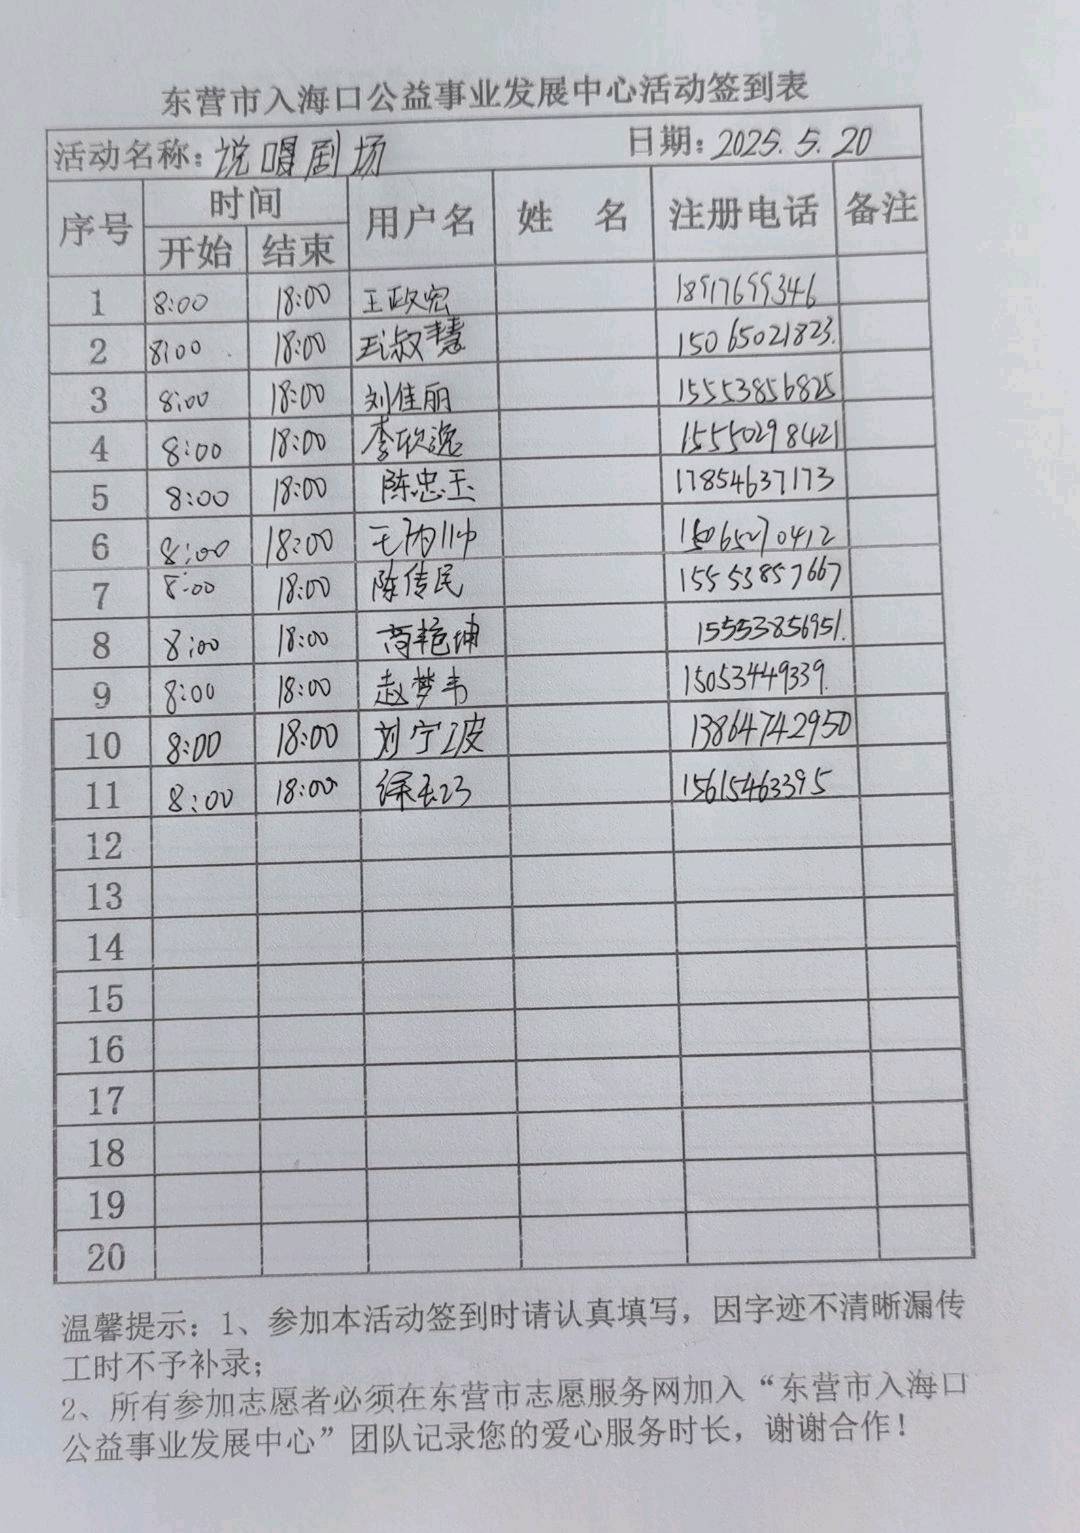 东营市入海口公益事业发展中心活动签到表
活动名称：说唱剧场 日期：2025.5.20
序号 时间 用户名 姓 名 注册电话 备注
开始 结束
1 8:00 18:00 王政宏 18917699346
2 8:00 18:00 王淑慧 15065021823.
3 8:00 18:00 刘佳丽 15553856825
4 8:00 18:00 李欣逸 15550298421
5 8:00 18:00 陈忠玉 17854637173
6 8:00 18:00 15065270412
7 8:00 18:00 陈传民 15553857667
8 8:00 18:00 商艳坤 15553856951.
9 8:00 18:00 赵梦韦 15053449339.
10 8:00 18:00 刘宁波 13864742950
11 8:00 18:00 15615463395
12
13
14
15
16
17
18
19
20
温馨提示：1、参加本活动签到时请认真填写，因字迹不清晰漏传
工时不予补录；
2、所有参加志愿者必须在东营市志愿服务网加入“东营市入海口
公益事业发展中心”团队记录您的爱心服务时长，谢谢合作！